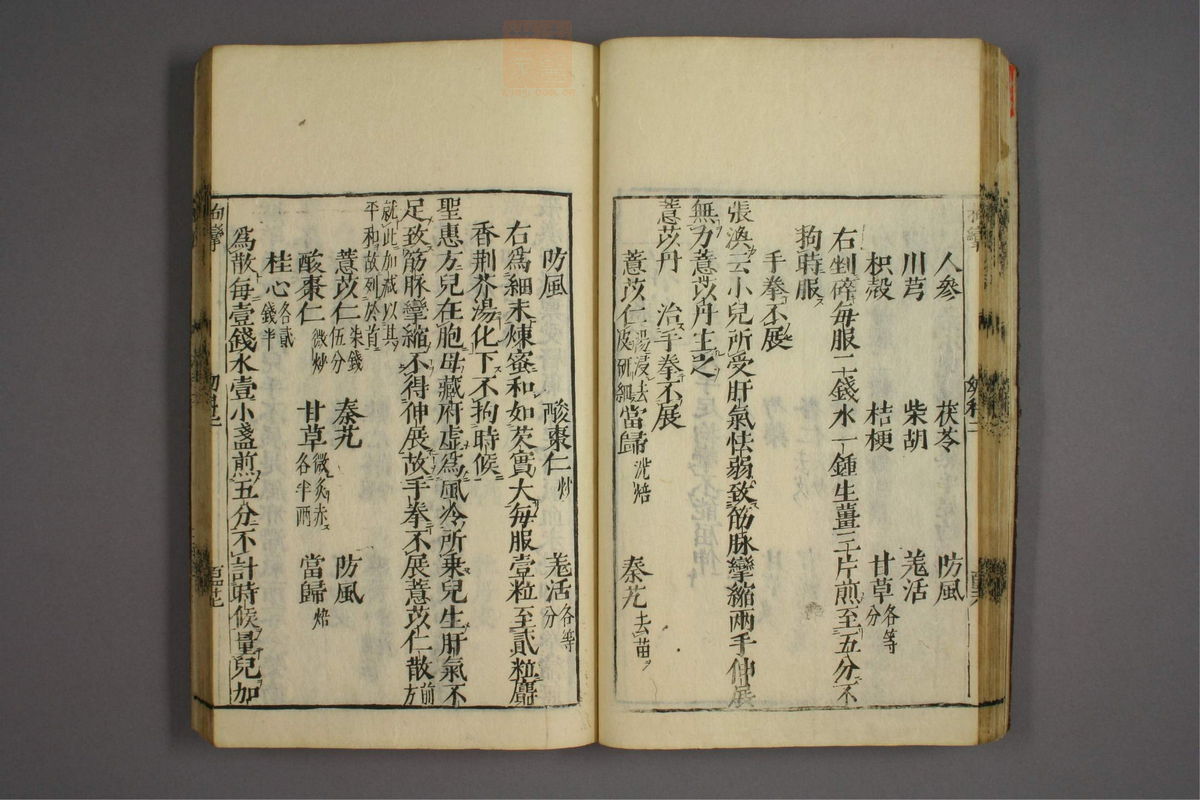 人參 茯苓 防風
川芎 柴胡 羗活
枳殼 桔梗 甘草各等分
右剉碎每服二錢水一鍾生薑三片煎至五分不
拘時服
手拳不展
張渙云小兒所受肝氣怯弱致筋脉攣縮兩手伸展
無力薏苡丹主之
薏苡丹 治手拳不展
薏苡仁湯浸去皮研細 當歸洗焙 秦艽去苗
防風 酸棗仁炒 羗活各等分
右爲細末煉蜜和如芡實大每服壹粒至貳粒麝
香荆芥湯化下不拘時候
聖惠方兒在胞母藏府虚爲風冷所乗兒生肝氣不
足致筋脉攣縮不得伸展故手拳不展薏苡仁散前方
就此加減以其平和故列於首
薏苡仁朱錢伍分 秦艽 防風
酸棗仁微炒 甘草微炙赤各半兩 當歸焙
桂心各貳錢半
爲散每壹錢水壹小盞煎五分不計時候量兒加